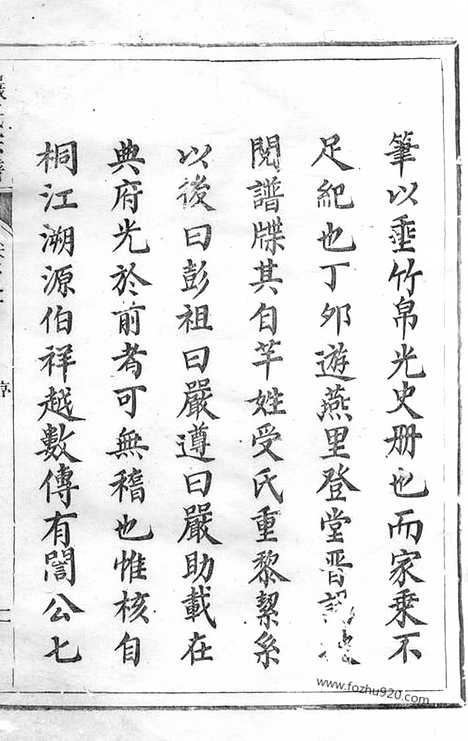 筆以垂竹帛光史册也而家乗不
足紀也丁卯遊燕里登堂晋謁
閱譜牒其自芊姓受氏重黎絜糸
以後曰彭祖曰嚴遵曰嚴助載在
典府光於前者可無稽也惟核自
桐江溯源伯祥越數傳有誾公七
序
www.fozhu920.com